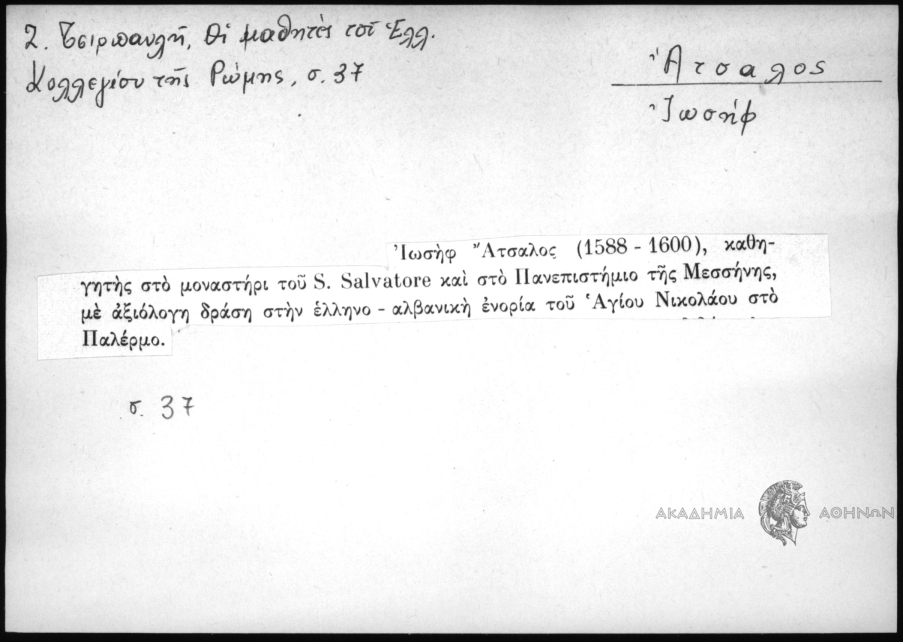 Ζ. Τσιρπανλῆ, Οἱ μαθητὲς τοῦ Ἑλλ.
Κολλεγίου τῆς Ρώμης, σ. 37
Ἄτσαλος
Ἰωσήφ
Ἰωσὴφ Ἄτσαλος (1588 - 1600), καθη-
γητὴς στὸ μοναστήρι τοῦ S. Salvatore καὶ στὸ Πανεπιστήμιο τῆς Μεσσήνης,
μὲ ἀξιόλογη δράση στὴν ἑλληνο - αλβανικὴ ἐνορία τοῦ Ἁγίου Νικολάου στὸ
Παλέρμο.
σ. 37
ΑΚΑΔΗΜΙΑ ΑΘΗΝΩΝ